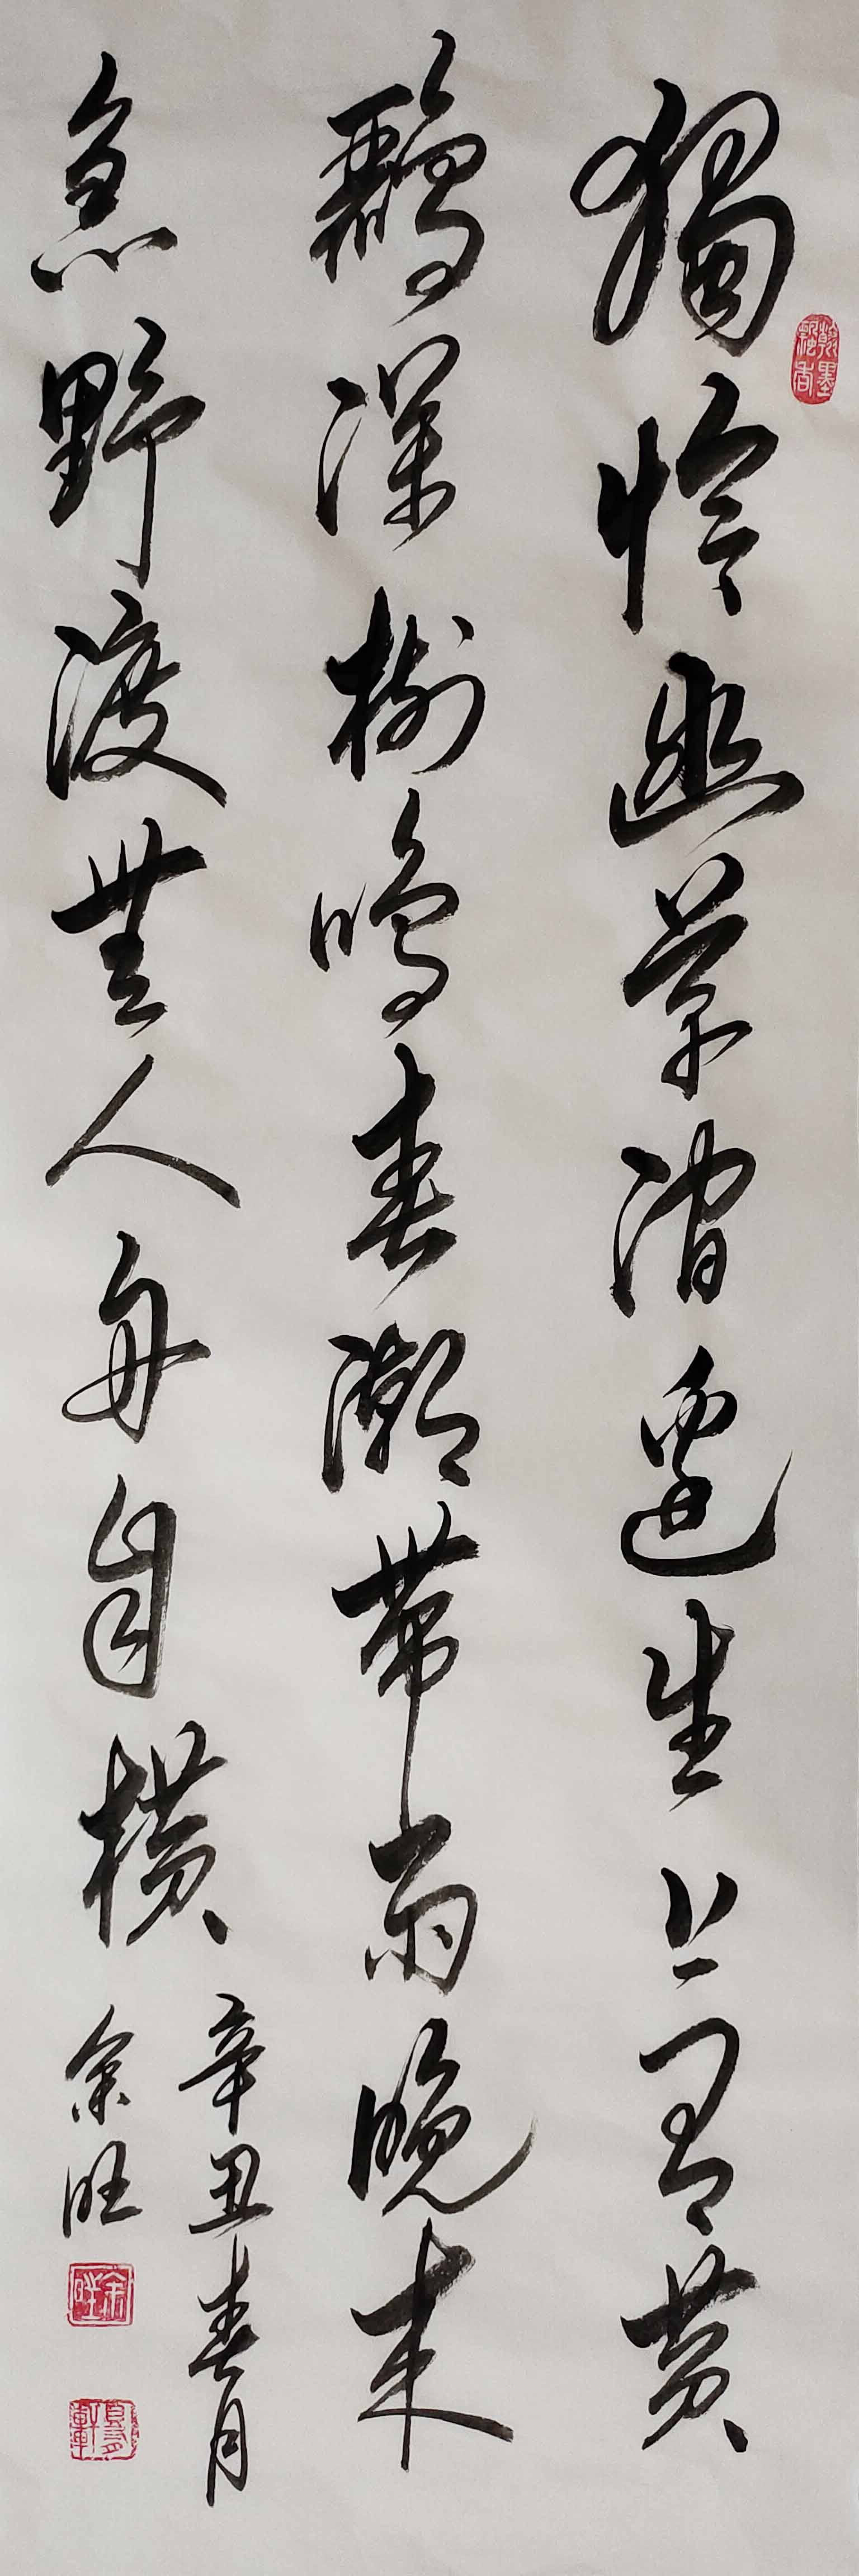 獨憐幽草澗邊生上有黃
鸝深樹鳴春潮帶雨晚來
急野渡無人舟自横
辛丑春月
余旺
翰墨飄香
余旺